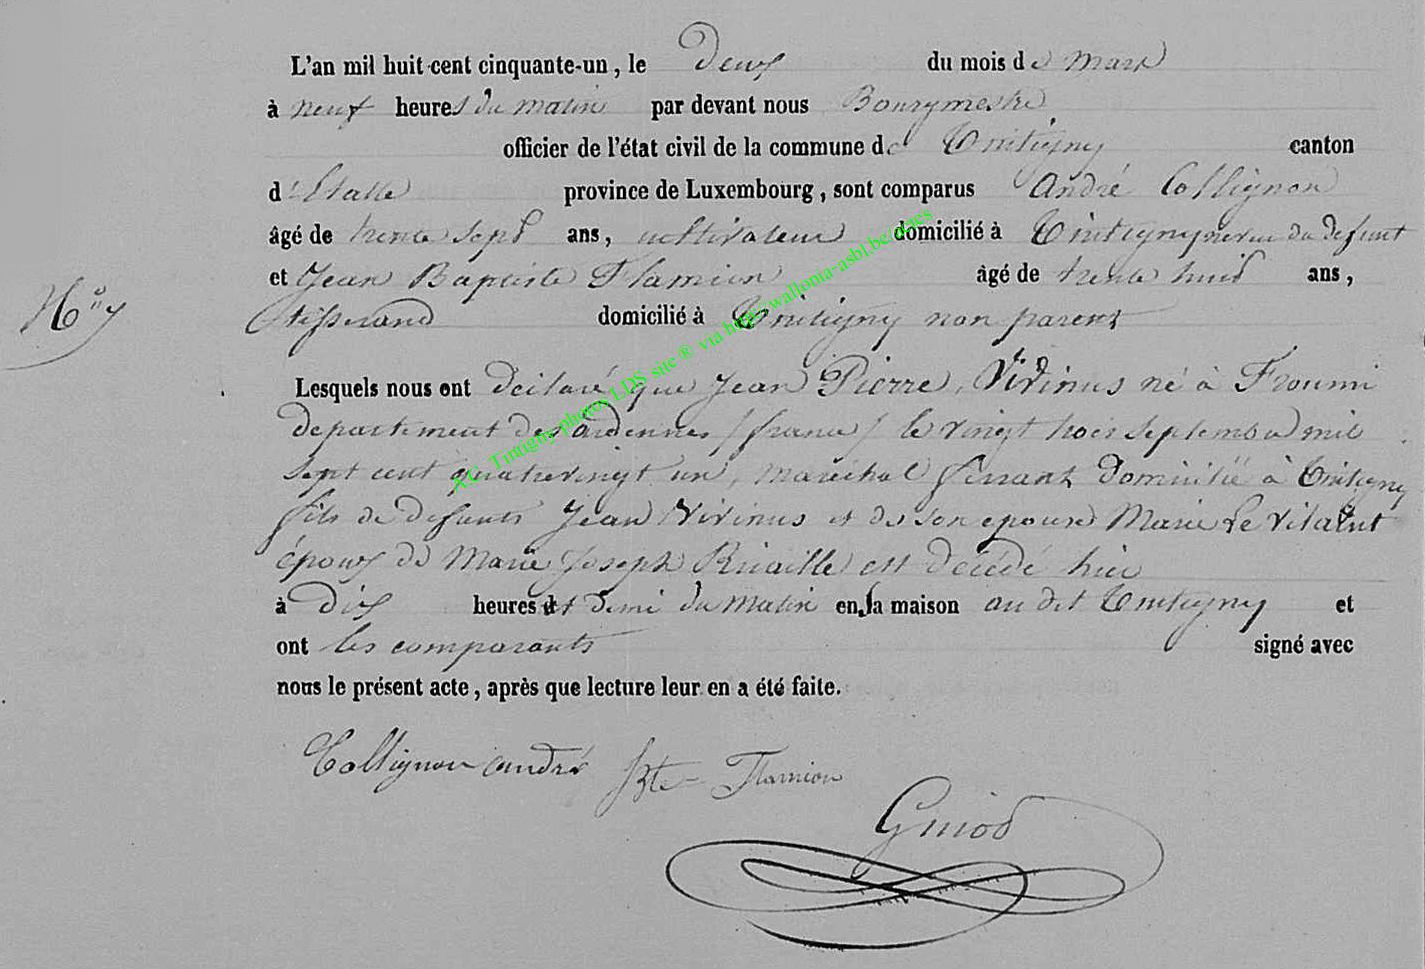 L'an mil huit cent cinquante-un, le Deux du mois de mars
à neuf heures du matin par devant nous Bourgmestre
officier de l'état civil de la commune de Tintigny canton
d'Etalle province de Luxembourg, sont comparus André Collignon
âgé de trente sept ans, cultivateur domicilié à Tintigny neveu du defunt
et Jean Baptiste Flamion âgé de trente huit ans,
tisserand domicilié à Tintigny non parent
N° 7
Lesquels nous ont déclaré que Jean Pierre Virinus né à Fromi
departement des ardennes / france / le vingt trois septembre mil
sept cent quatrevingt un, maréchal ferrant domicilié à Tintigny
fils de defunts Jean Virinus et de son epouse Marie
époux de Marie Joseph est décédé hier
à Dix heures et demi du matin en sa maison au dit Tintigny et
ont les comparants signé avec
nous le présent acte, après que lecture leur en a été faite.
Collignon andré Bte Flamion
AC Tintigny photos LDS site ® via http://wallonia-asbl.be/actes